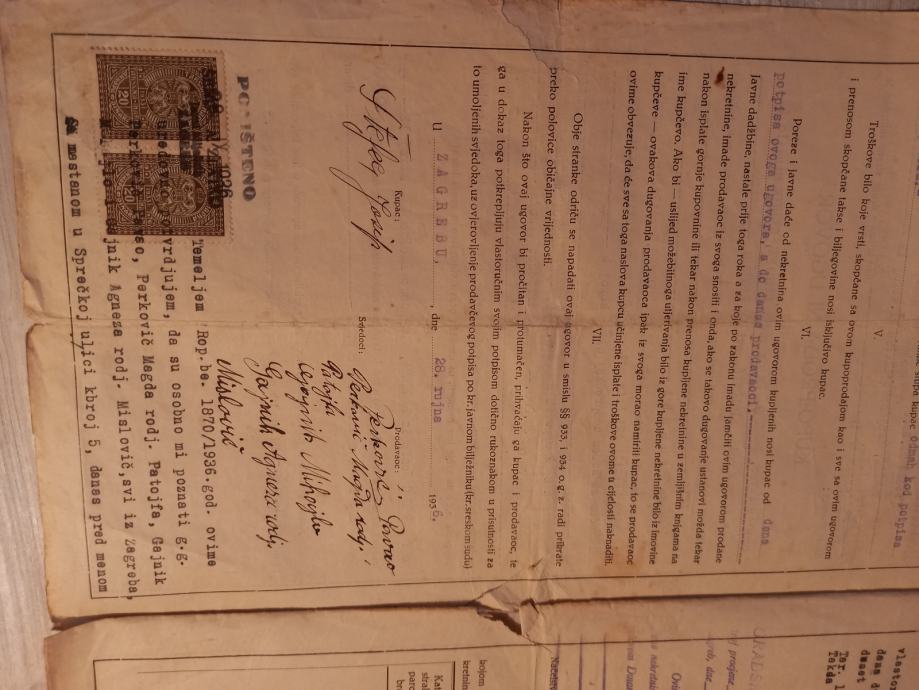 kupac odmah kod potpisa
V.
Troškove bilo koje vrsti, skopčane sa ovom kupoprodajom kao i sve sa ovim ugovorom
i prenosom skopčane takse i biljegovine nosi isključivo kupac.
VI.
Poreze i javne daće od nekretnina ovim ugovorom kupljenih nosi kupac od dana
potpisa ovoga ugovora, a do danas prodavaoci.
Javne dadžbine, nastale prije toga roka a za koje po zakonu imadu jamčiti ovim ugovorom prodane
nekretnine, imade prodavaoc iz svoga snositi i onda, ako se takovo dugovanje ustanovi možda tekar
nakon isplate gornje kupovnine ili tekar nakon prenosa kupljene nekretnine u zemljišnim knjigama na
ime kupčevo. Ako bi — uslijed možebitnoga utjerivanja bilo iz gore kupljene nekretnine bilo iz imovine
kupčeve — ovakova dugovanja prodavaoca ipak iz svoga morao namiriti kupac, to se prodavaoc
ovime obvezuje, da će sve sa toga naslova kupcu učinjene isplate i troškove ovome u cijelosti naknaditi.
VII.
Obje stranke odriču se napadati ovaj ugovor u smislu §§ 933, i 934 o. g. z. radi prikrate
preko polovice običajne vrijednosti.
Nakon što ovaj ugovor bi pročitan i protumačen, prihvaćaju ga kupac i prodavaoc, te
ga u dokaz toga potkrepljuju vlastoručnim svojim potpisom dotično rukoznakom u prisutnosti za
to umoljenih svjedoka, uz ovjerovljenje prodavčevog potpisa po kr. javnom bilježniku (kr. sreskom sudu)
U ZAGREBU, dne 28. rujna 1936.
Kupac:
Prodavaoc:
Josip
Svjedoci:
Perković Pavao
Perković Magda rodj.
Patojfa
Gajnik Mihajlo
Gajnik Agneza rodj.
Mislović
PO IŠTENO
1936
20
20
Temeljem Rop.be. 1870/1936.god. ovime
uredovno tvrdjujem, da su osobno mi poznati g.g.
Perković Pavao, Perković Magda rodj. Patojfa, Gajnik
jnik Agneza rodj. Mislović,svi iz Zagreba,
sa mestanom u Sprečkoj ulici kbroj 5, danas pred menom